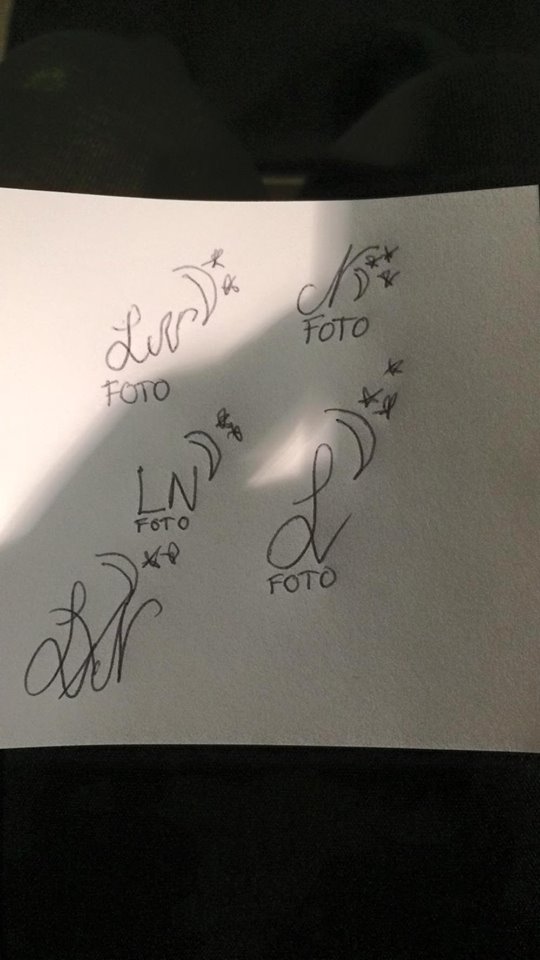 LN
FOTO
N
FOTO
LN
FOTO
L
FOTO
LN